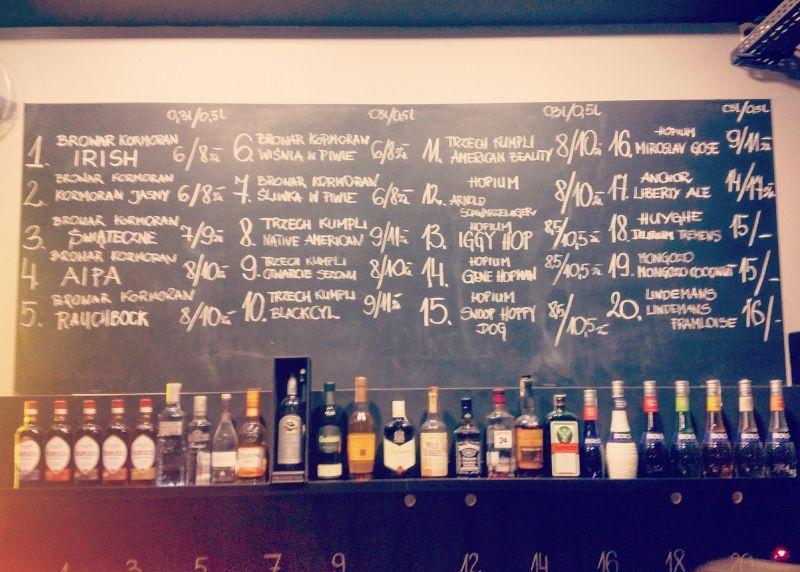 0,3L/0,5L
1. BROWAR KORMORAN
IRISH 6/8zł
2. BROWAR KORMORAN
KORMORAN JASNY 6/8zł
3. BROWAR KORMORAN
ŚWIĄTECZNE 7/9zł
4. BROWAR KORMORAN
AIPA 8/10zł
5. BROWAR KORMORAN
RAUCHBOCK 8/10zł
0,3L/0,5L
6. BROWAR KORMORAN
WIŚNIA W PIWIE 6/8zł
7. BROWAR KORMORAN
ŚLIWKA W PIWIE 6/8zł
8. TRZECH KUMPLI
NATIVE AMERICAN 9/11zł
9. TRZECH KUMPLI
OTWARCIE SEZONU 8/10zł
10. TRZECH KUMPLI
BLACKCYL 9/11zł
0,3L/0,5L
11. TRZECH KUMPLI
AMERICAN BEAUTY 8/10zł
12. HOPIUM
ARNOLD
8/10zł
13. HOPIUM
IGGY HOP 8,5/10,5zł
14. HOPIUM
GENE HOPMAN 8,5/10,5zł
15. HOPIUM
SNOOP HOPPY
DOG 8,5/10,5zł
0,3L/0,5L
16. HOPIUM
MIROSLAV GOSE 9/11zł
17. ANCHOR
LIBERTY ALE 14/17zł
18. HUYGHE
TREMENS 15/-
19. MONGOZO
MONGOZO COCONUT 15/-
20. LINDEMANS
LINDEMANS
FRAMBOISE 16/-
24
JACK DANIEL'S
BOLS
BOLS
BOLS
BOLS
BOLS
BOLS
BOLS
1 3 5 7 9 12 14 16 18 20